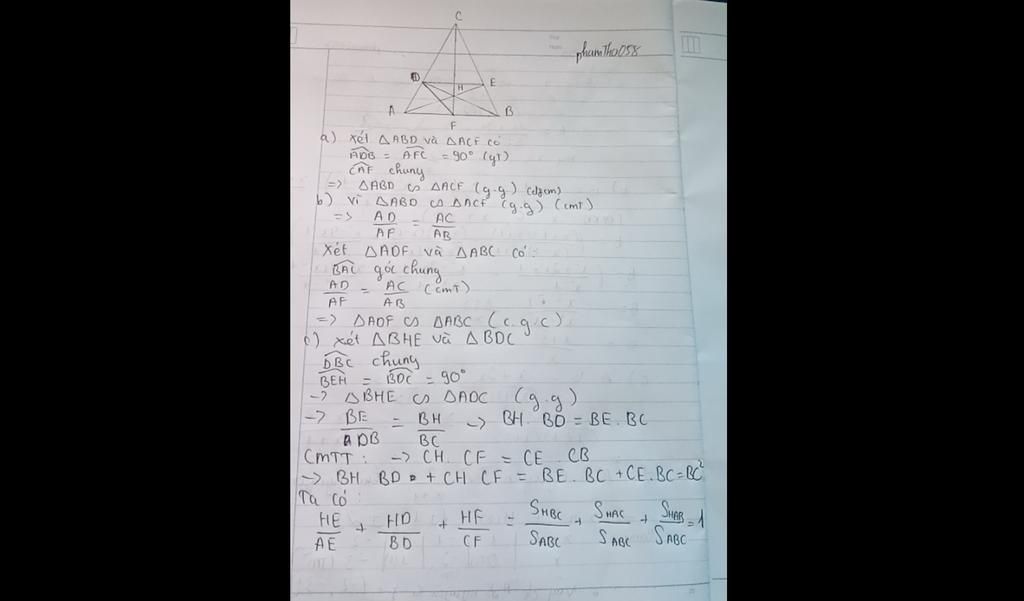 C
phamtho058
D
H
E
A
F
B
a) Xét △ABD và △ACF có
ADB = AFC = 90° (gt)
CAF chung
=> △ABD ∽ △ACF (g.g) (đpcm)
b) Vì △ABD ∽ △ACF (g.g) (cmt)
=> AD/AF = AC/AB
Xét △ADF và △ABC có:
BAC góc chung
AD/AF = AC/AB (cmt)
=> △ADF ∽ △ABC (c.g.c)
c) Xét △BHE và △BDC
DBC chung
BEH = BDC = 90°
-> △BHE ∽ △ADC (g.g)
-> BE/DB = BH/BC -> BH.BD = BE.BC
CMTT: -> CH.CF = CE.CB
-> BH.BD + CH.CF = BE.BC + CE.BC = BC²
Ta có:
HE/AE + HD/BD + HF/CF = SHBC/SABC + SHAC/SABC + SHAB/SABC = 1